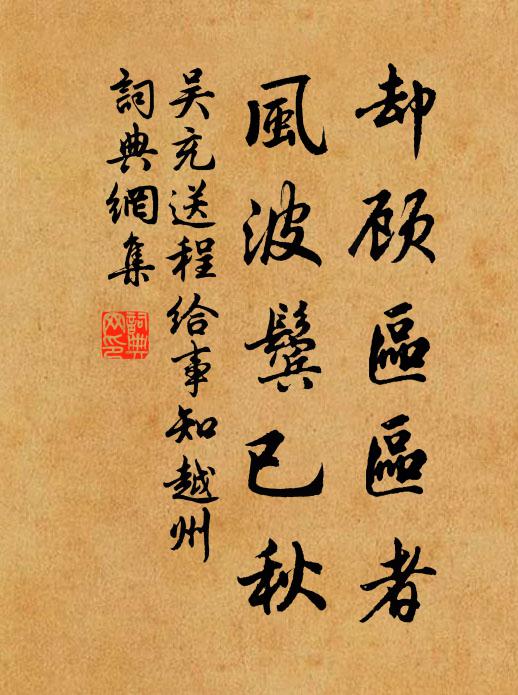 却顾區區者
風波鬓已秋
吴充送程给事知越州
詞典網集
詞典網印